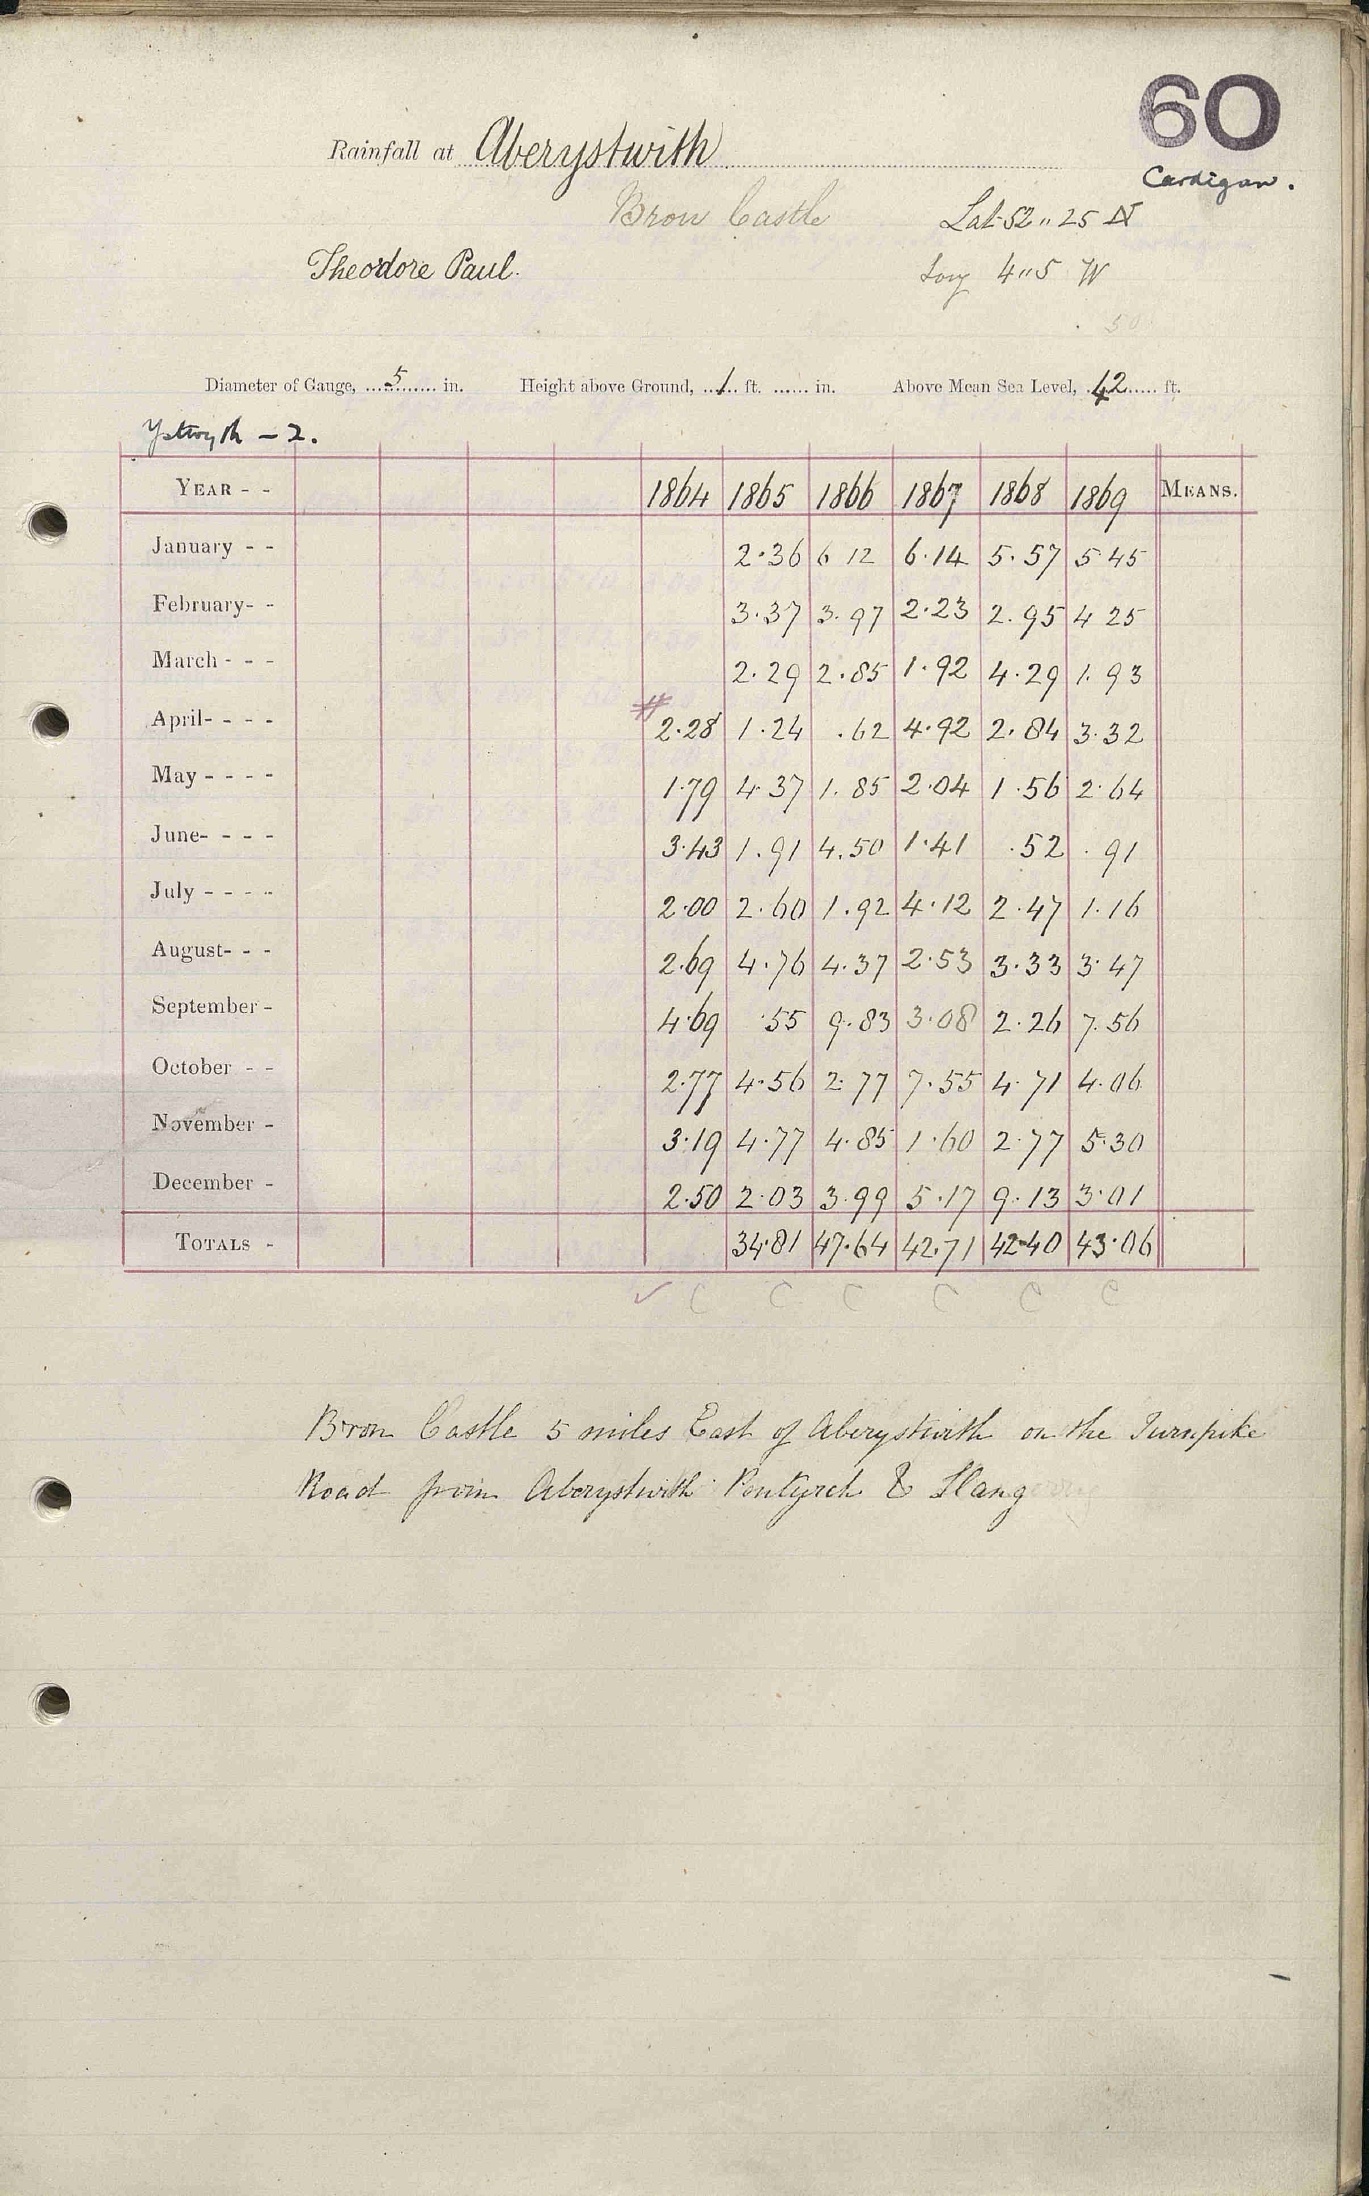 60
Cardigan.
Rainfall at Aberystwith
Bron Castle Lat 52 " 25 N
Theodore Paul. Long 4 " 5 W
50
Diameter of Gauge, 5 in. Height above Ground, 1 ft. in. Above Mean Sea Level, 42 ft.
Ystwyth - 2.
YEAR - - 1864 1865 1866 1867 1868 1869 MEANS.
January - - 2.36 6 12 6.14 5.57 5 45
February- - 3.37 3.97 2.23 2.95 4 25
March - - - 2.29 2.85 1.92 4.29 1.93
April- - - - # 2.28 1.24 .62 4.92 2.84 3.32
May - - - - 1.79 4.37 1.85 2.04 1.56 2.64
June- - - - 3.43 1.91 4.50 1.41 .52 .91
July - - - - 2.00 2.60 1.92 4.12 2.47 1.16
August- - - 2.69 4.76 4.37 2.53 3.33 3.47
September - 4.69 .55 9.83 3.08 2.26 7.56
October - - 2.77 4.56 2.77 7.55 4.71 4.06
November - 3.19 4.77 4.85 1.60 2.77 5.30
December - 2.50 2.03 3.99 5.17 9.13 3.01
TOTALS - 34.81 47.64 42.71 42.40 43.06
✓ C C C C C C
Bron Castle 5 miles East of Aberystwith on the Turnpike
Road from Aberystwith Pontyrch & Llang